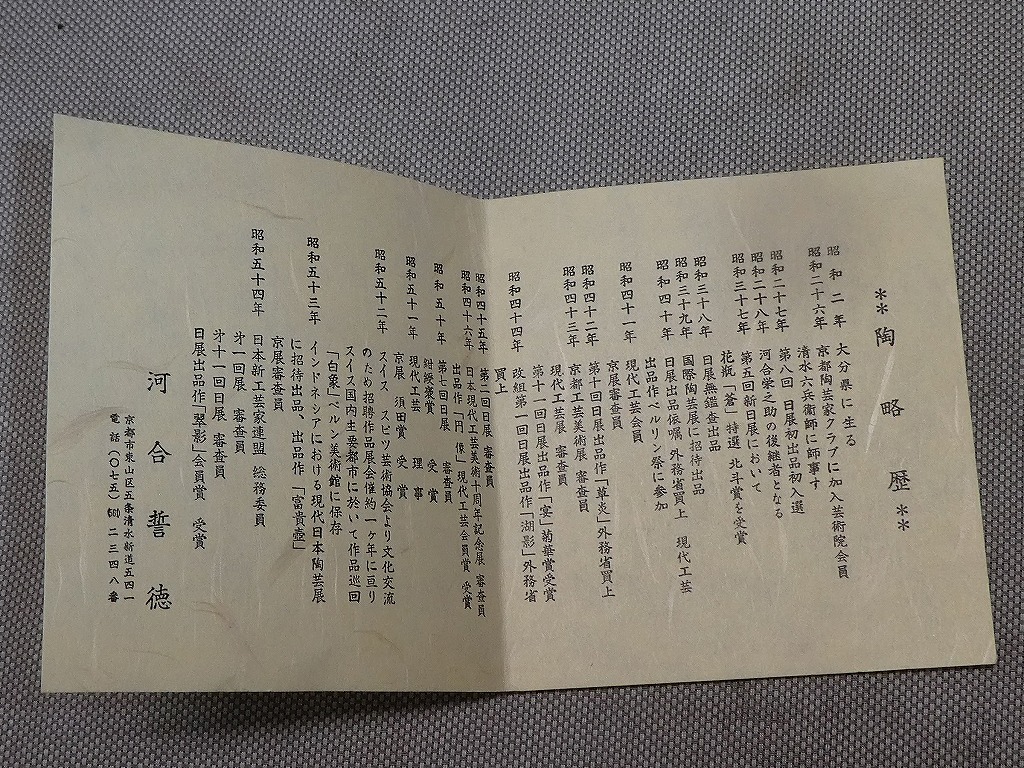 **陶略歴**
昭和二年 大分県に生る
昭和二十六年 京都陶芸家クラブに加入芸術院会員
清水六兵衛師に師事す
昭和二十七年 第八回 日展初出品初入選
昭和二十八年 河合栄之助の後継者となる
昭和三十七年 第五回新日展において
花瓶「蒼」特選 北斗賞を受賞
昭和三十八年 日展無鑑査出品
昭和三十九年 国際陶芸展に招待出品
昭和四十年 日展出品依嘱 外務省買上 現代工芸
出品作ベルリン祭に参加
昭和四十一年 現代工芸会員
京展審査員
昭和四十二年 第十回日展出品作「草炎」外務省買上
昭和四十三年 京都工芸美術展 審査員
現代工芸展 審査員
第十一回日展出品作「宴」菊華賞受賞
昭和四十四年 改組第一回日展出品作「湖影」外務省
買上
昭和四十五年 第二回日展 審査員
昭和四十六年 日本現代工芸美術十周年記念展 審査員
出品作「円像」現代工芸会員賞 受賞
昭和五十年 第七回日展 審査員
紺綬褒賞 受賞
昭和五十一年 現代工芸 理事
京展 須田賞 受賞
昭和五十二年 スイス スピツ芸術協会より文化交流
のため招聘作品展会催約一ヶ年に亘り
スイス国内主要都市に於いて作品巡回
「白象」ベルン美術館に保存
昭和五十三年 インドネシアにおける現代日本陶芸展
に招待出品、出品作「富貴壺」
京展審査員
昭和五十四年 日本新工芸家連盟 総務委員
才一回展 審査員
才十一回日展 審査員
日展出品作「翠影」会員賞 受賞
河合誓徳
京都市東山区五条清水新道五四一
電話(〇七五) 二三四八番